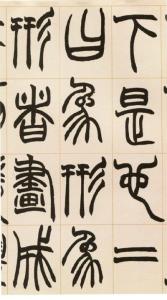 下是也二
曰象形象
形者畫成